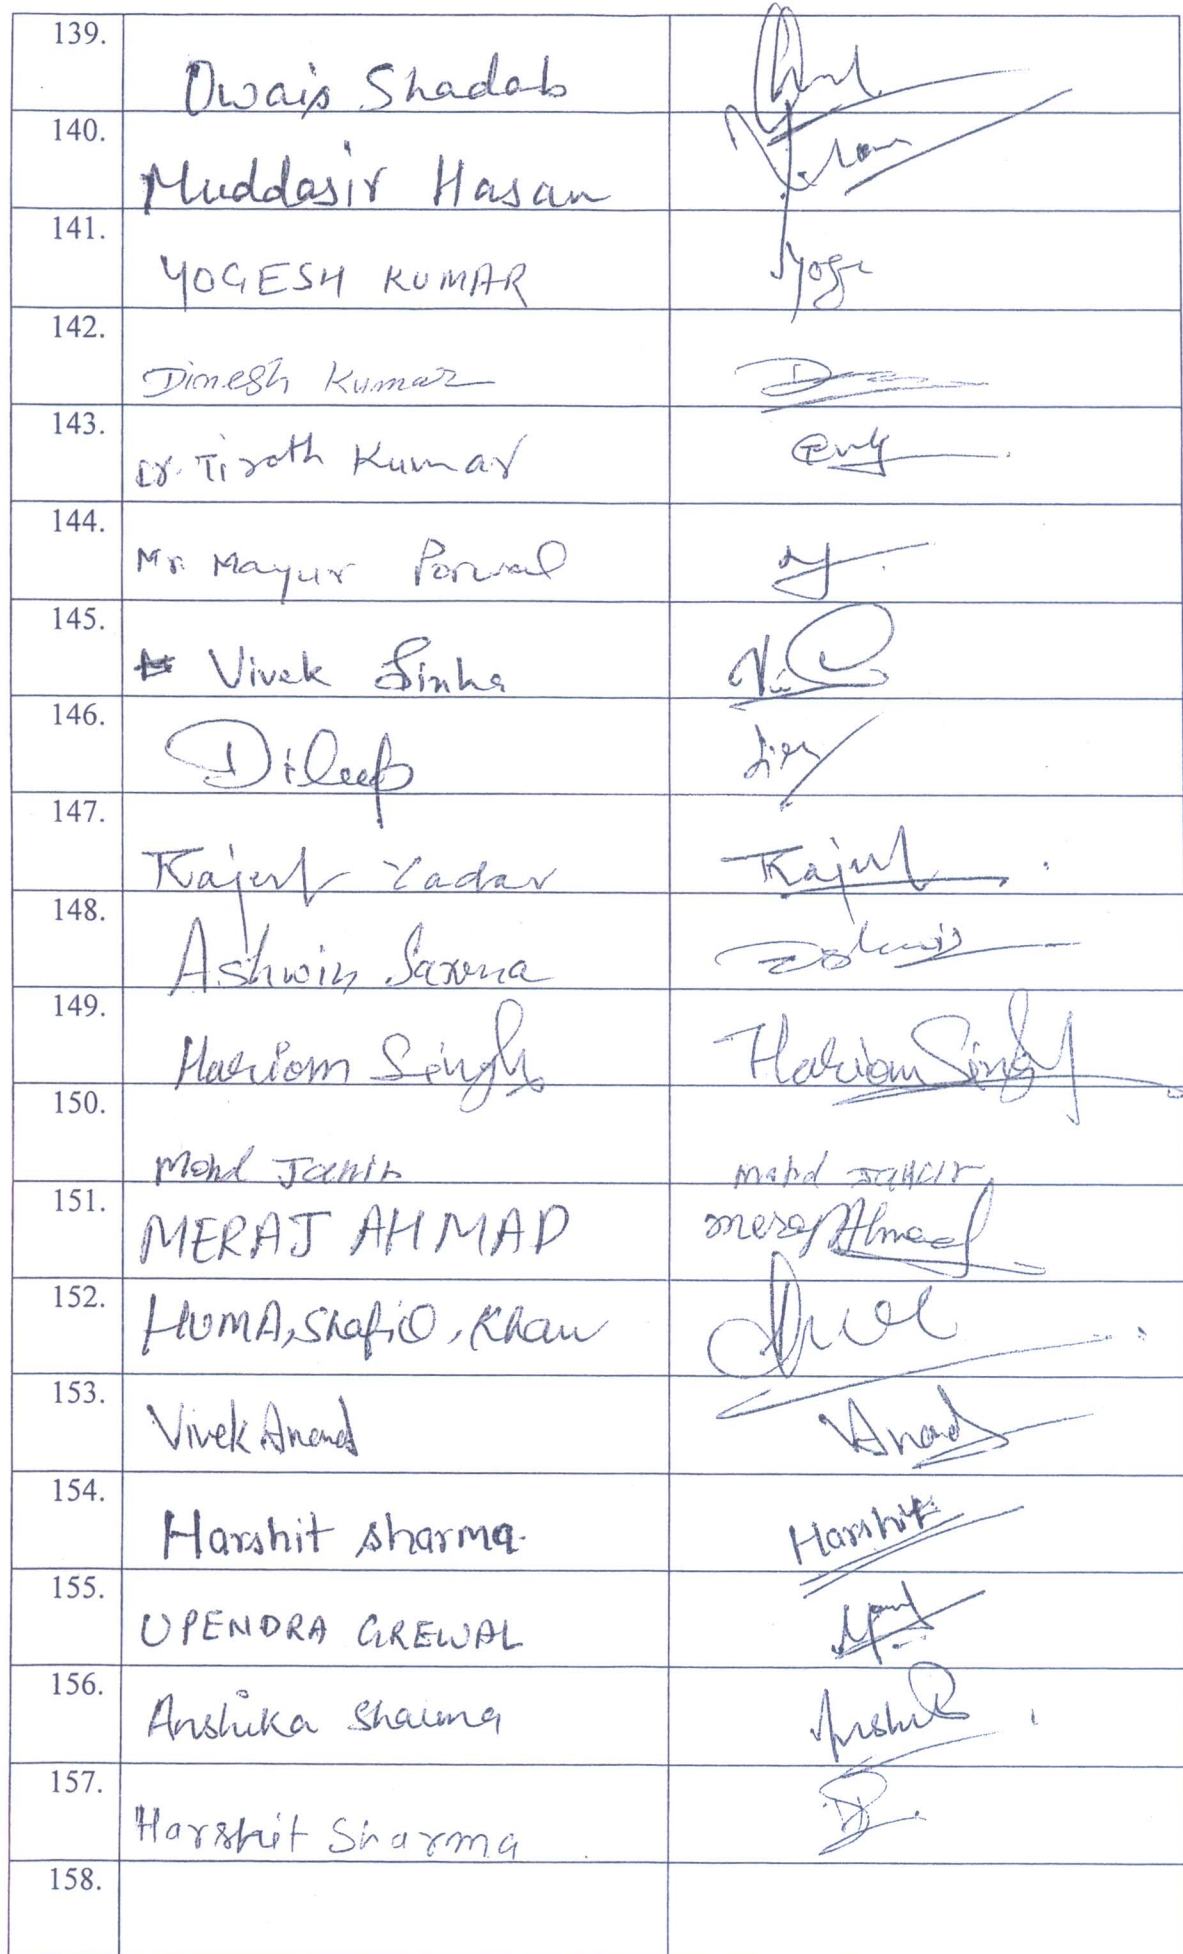 139.
Owais Shadab
140.
Muddasir Hasan
141.
YOGESH KUMAR yoge
142.
Dinesh Kumar
143.
Dr. Tirath Kumar
144.
Mr. Mayur Porwal
145.
Vivek Sinha
146.
Dileep
147.
Rajeef Yadav
148.
Ashwin Saxena
149.
Hariom Singh Hariom Singh
150.
Mohd
151.
MERAJ AHMAD Meraj Ahmad
152.
HUMA, Shafiq, Khan
153.
Vivek Anand VAnand
154.
Harshit sharma. Harshit
155.
UPENDRA GREWAL
156.
Anshika Sharma
157.
Harshit Sharma
158.